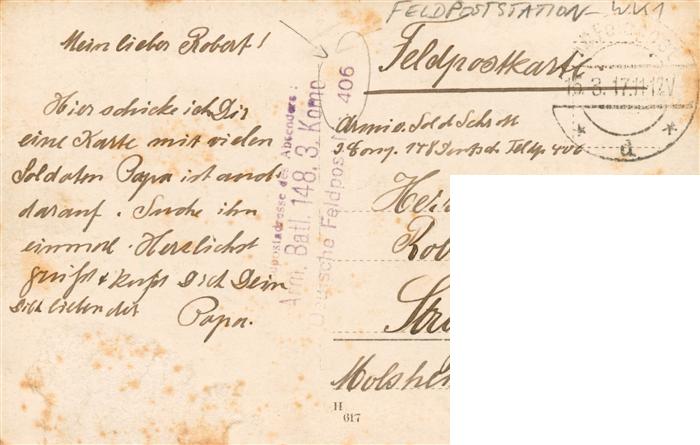 FELDPOSTSTATION WK1
Mein lieber Robert!
Hier schicke ich Dir
eine Karte mit vielen
Soldaten Papa ist auch
darauf. Suche ihn
einmal. Herzlichst
grüßt & küßt Dich Dein
Dich liebender
Papa.
postadresse des Absenders:
Arm. Batl. 148, 3. Komp.
Deutsche Feldpost 406
Feldpostkarte
15.3.17.11-12V
* d *
Armie. Sold Schott
3 Comp. 148 Deutsch. Feldp. 406
Molshe
H
617